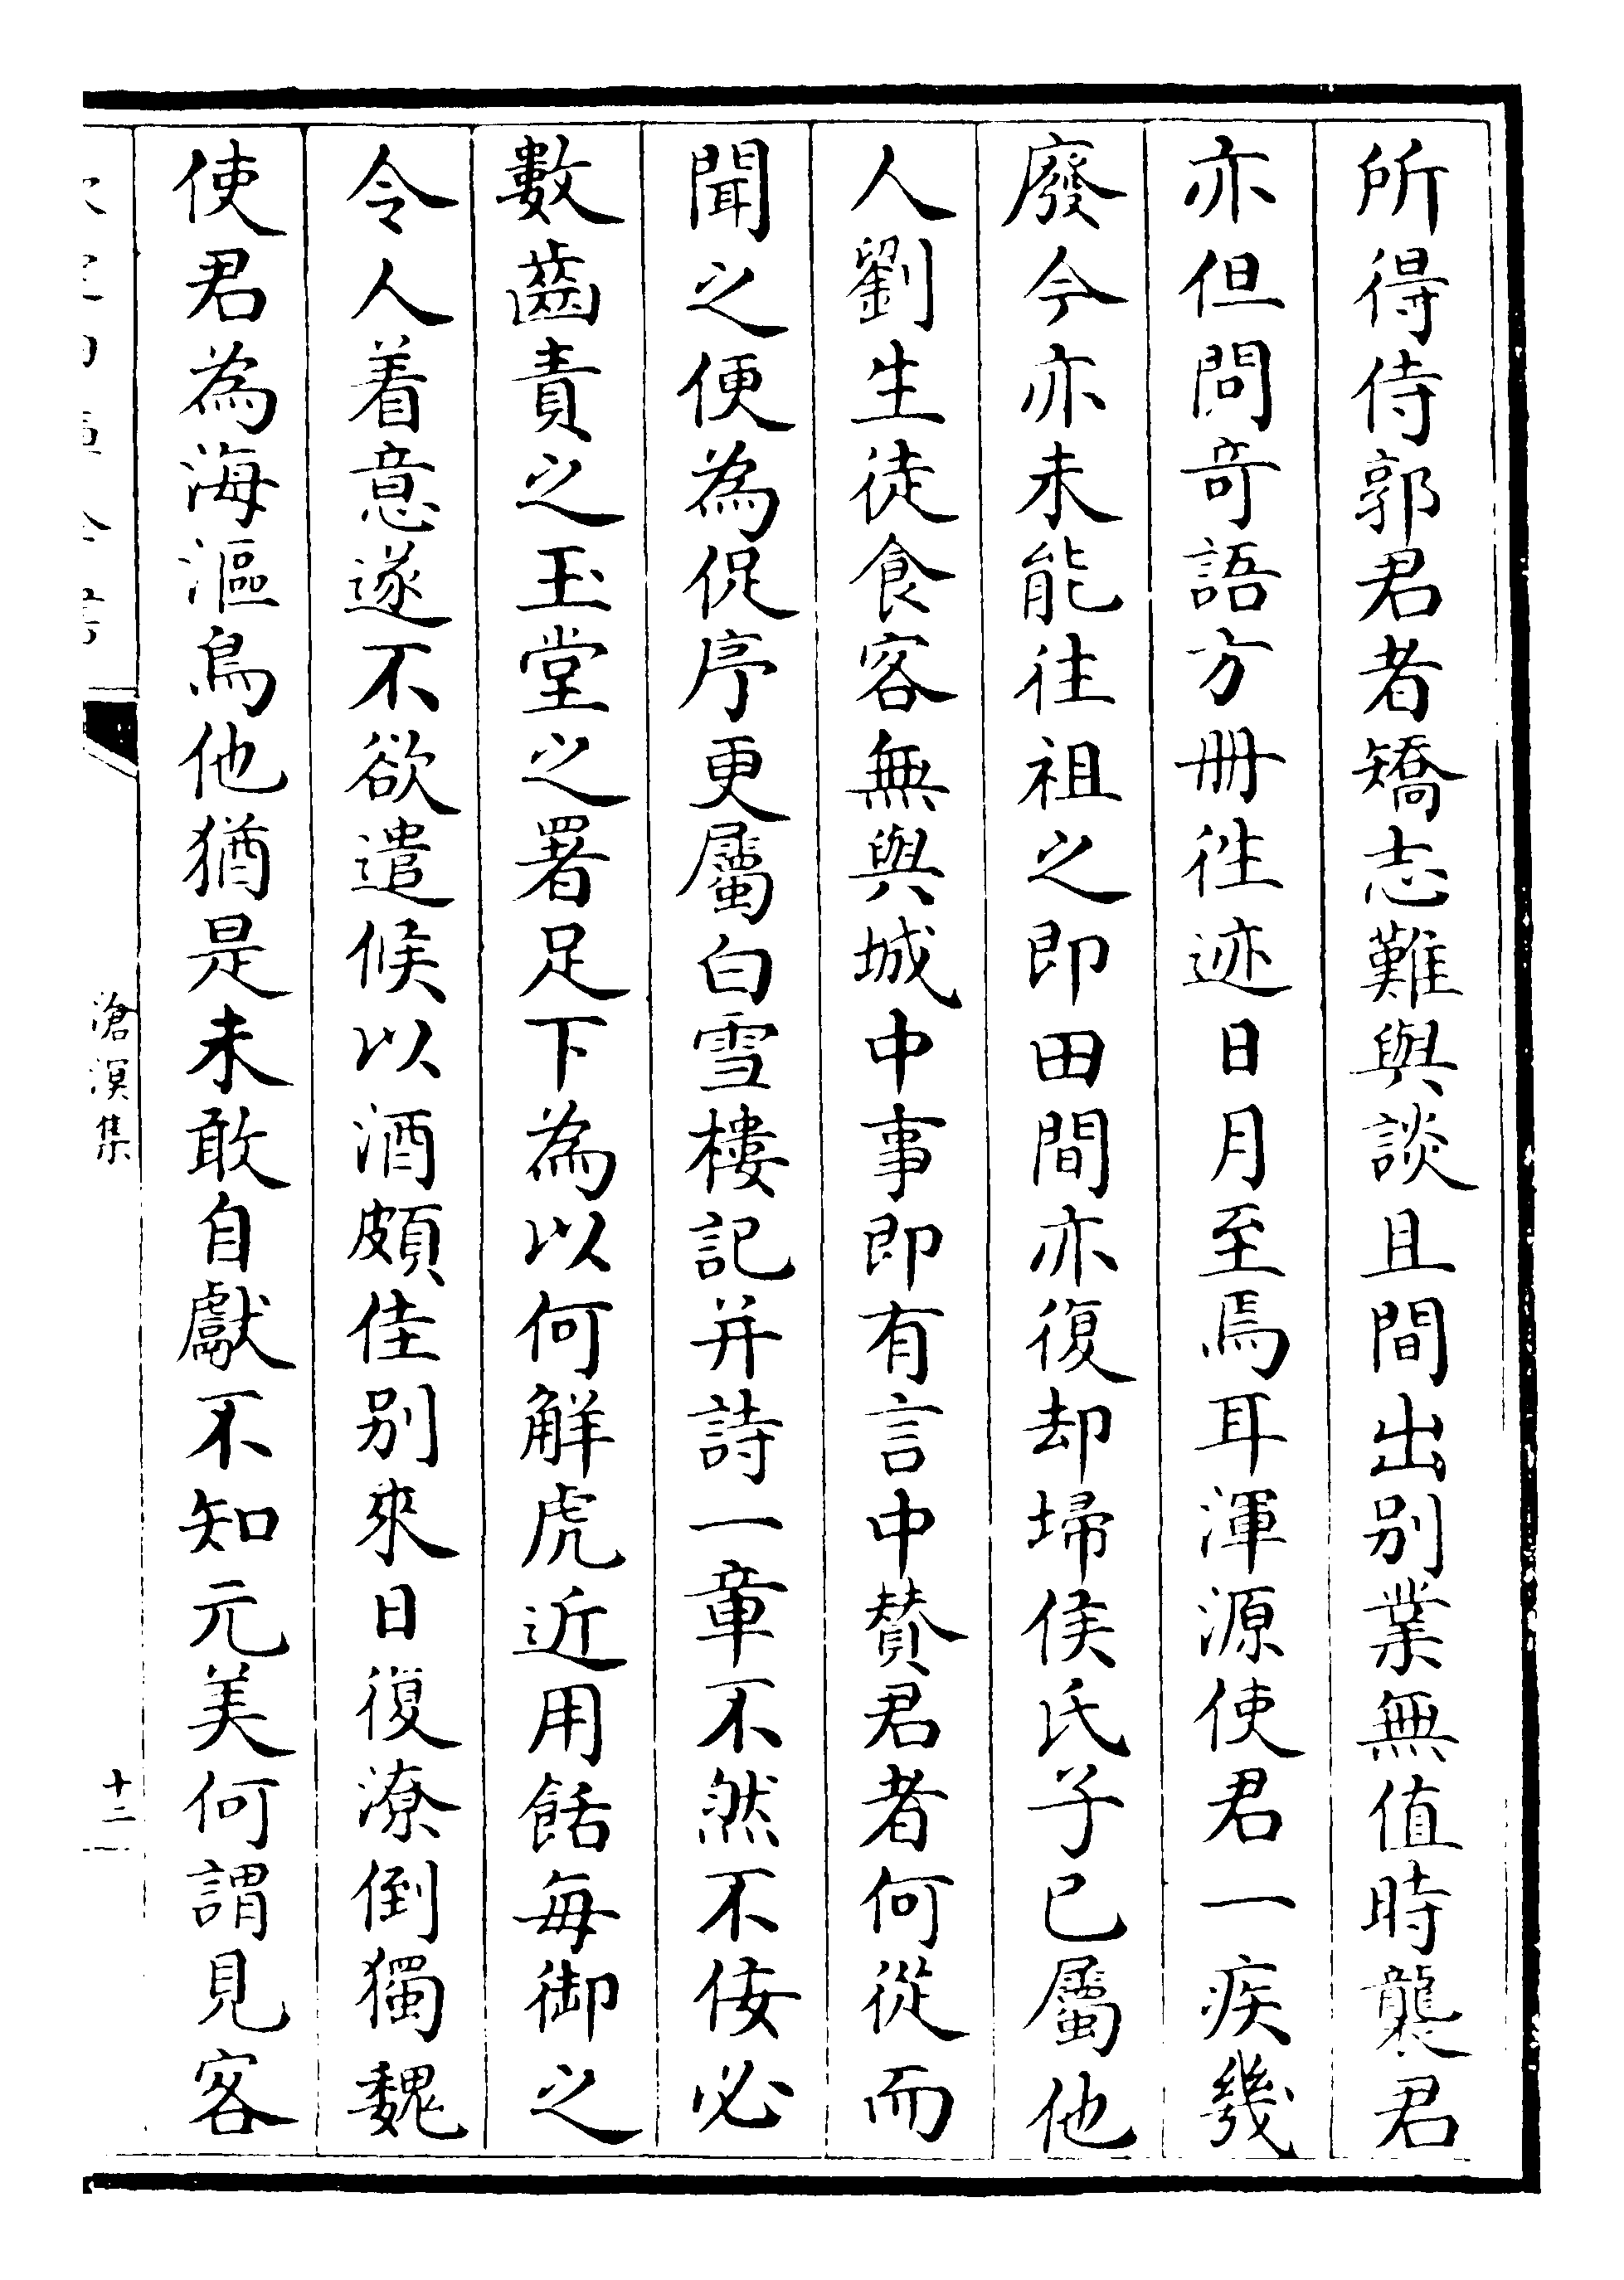 所得侍郭君者矯志難與談且間出别業無值時襲君
亦但問奇語方冊徃迹日月至焉耳渾源使君一疾幾
廢今亦未能往祖之即田間亦復却埽侯氏子已屬他
人劉生徒食客無與城中事即有言中賛君者何從而
聞之便為促序更屬白雪樓記并詩一章不然不佞必
數齒責之玉堂之署足下為以何解虎近用餂每御之
令人着意遂不欲遣候以酒頗佳别來日復潦倒獨魏
使君為海漚鳥他猶是未敢自獻不知元美何謂見客
滄溟集
十二